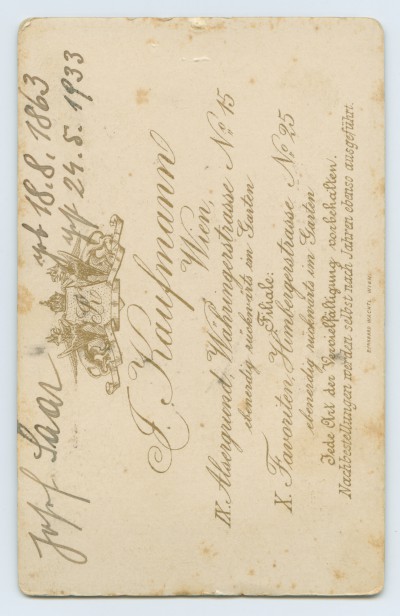 Josef Saar geb 18.8.1863
gest 24.5.1933
J. Kaufmann
Wien,
IX. Alsergrund, Währingerstrasse No 15
ebenerdig rückwärts im Garten
Filiale:
X. Favoriten, Himbergerstrasse No 25
ebenerdig rückwärts im Garten
Jede Art der Vervielfältigung vorbehalten.
Nachbestellungen werden selbst nach Jahren ebenso ausgeführt.